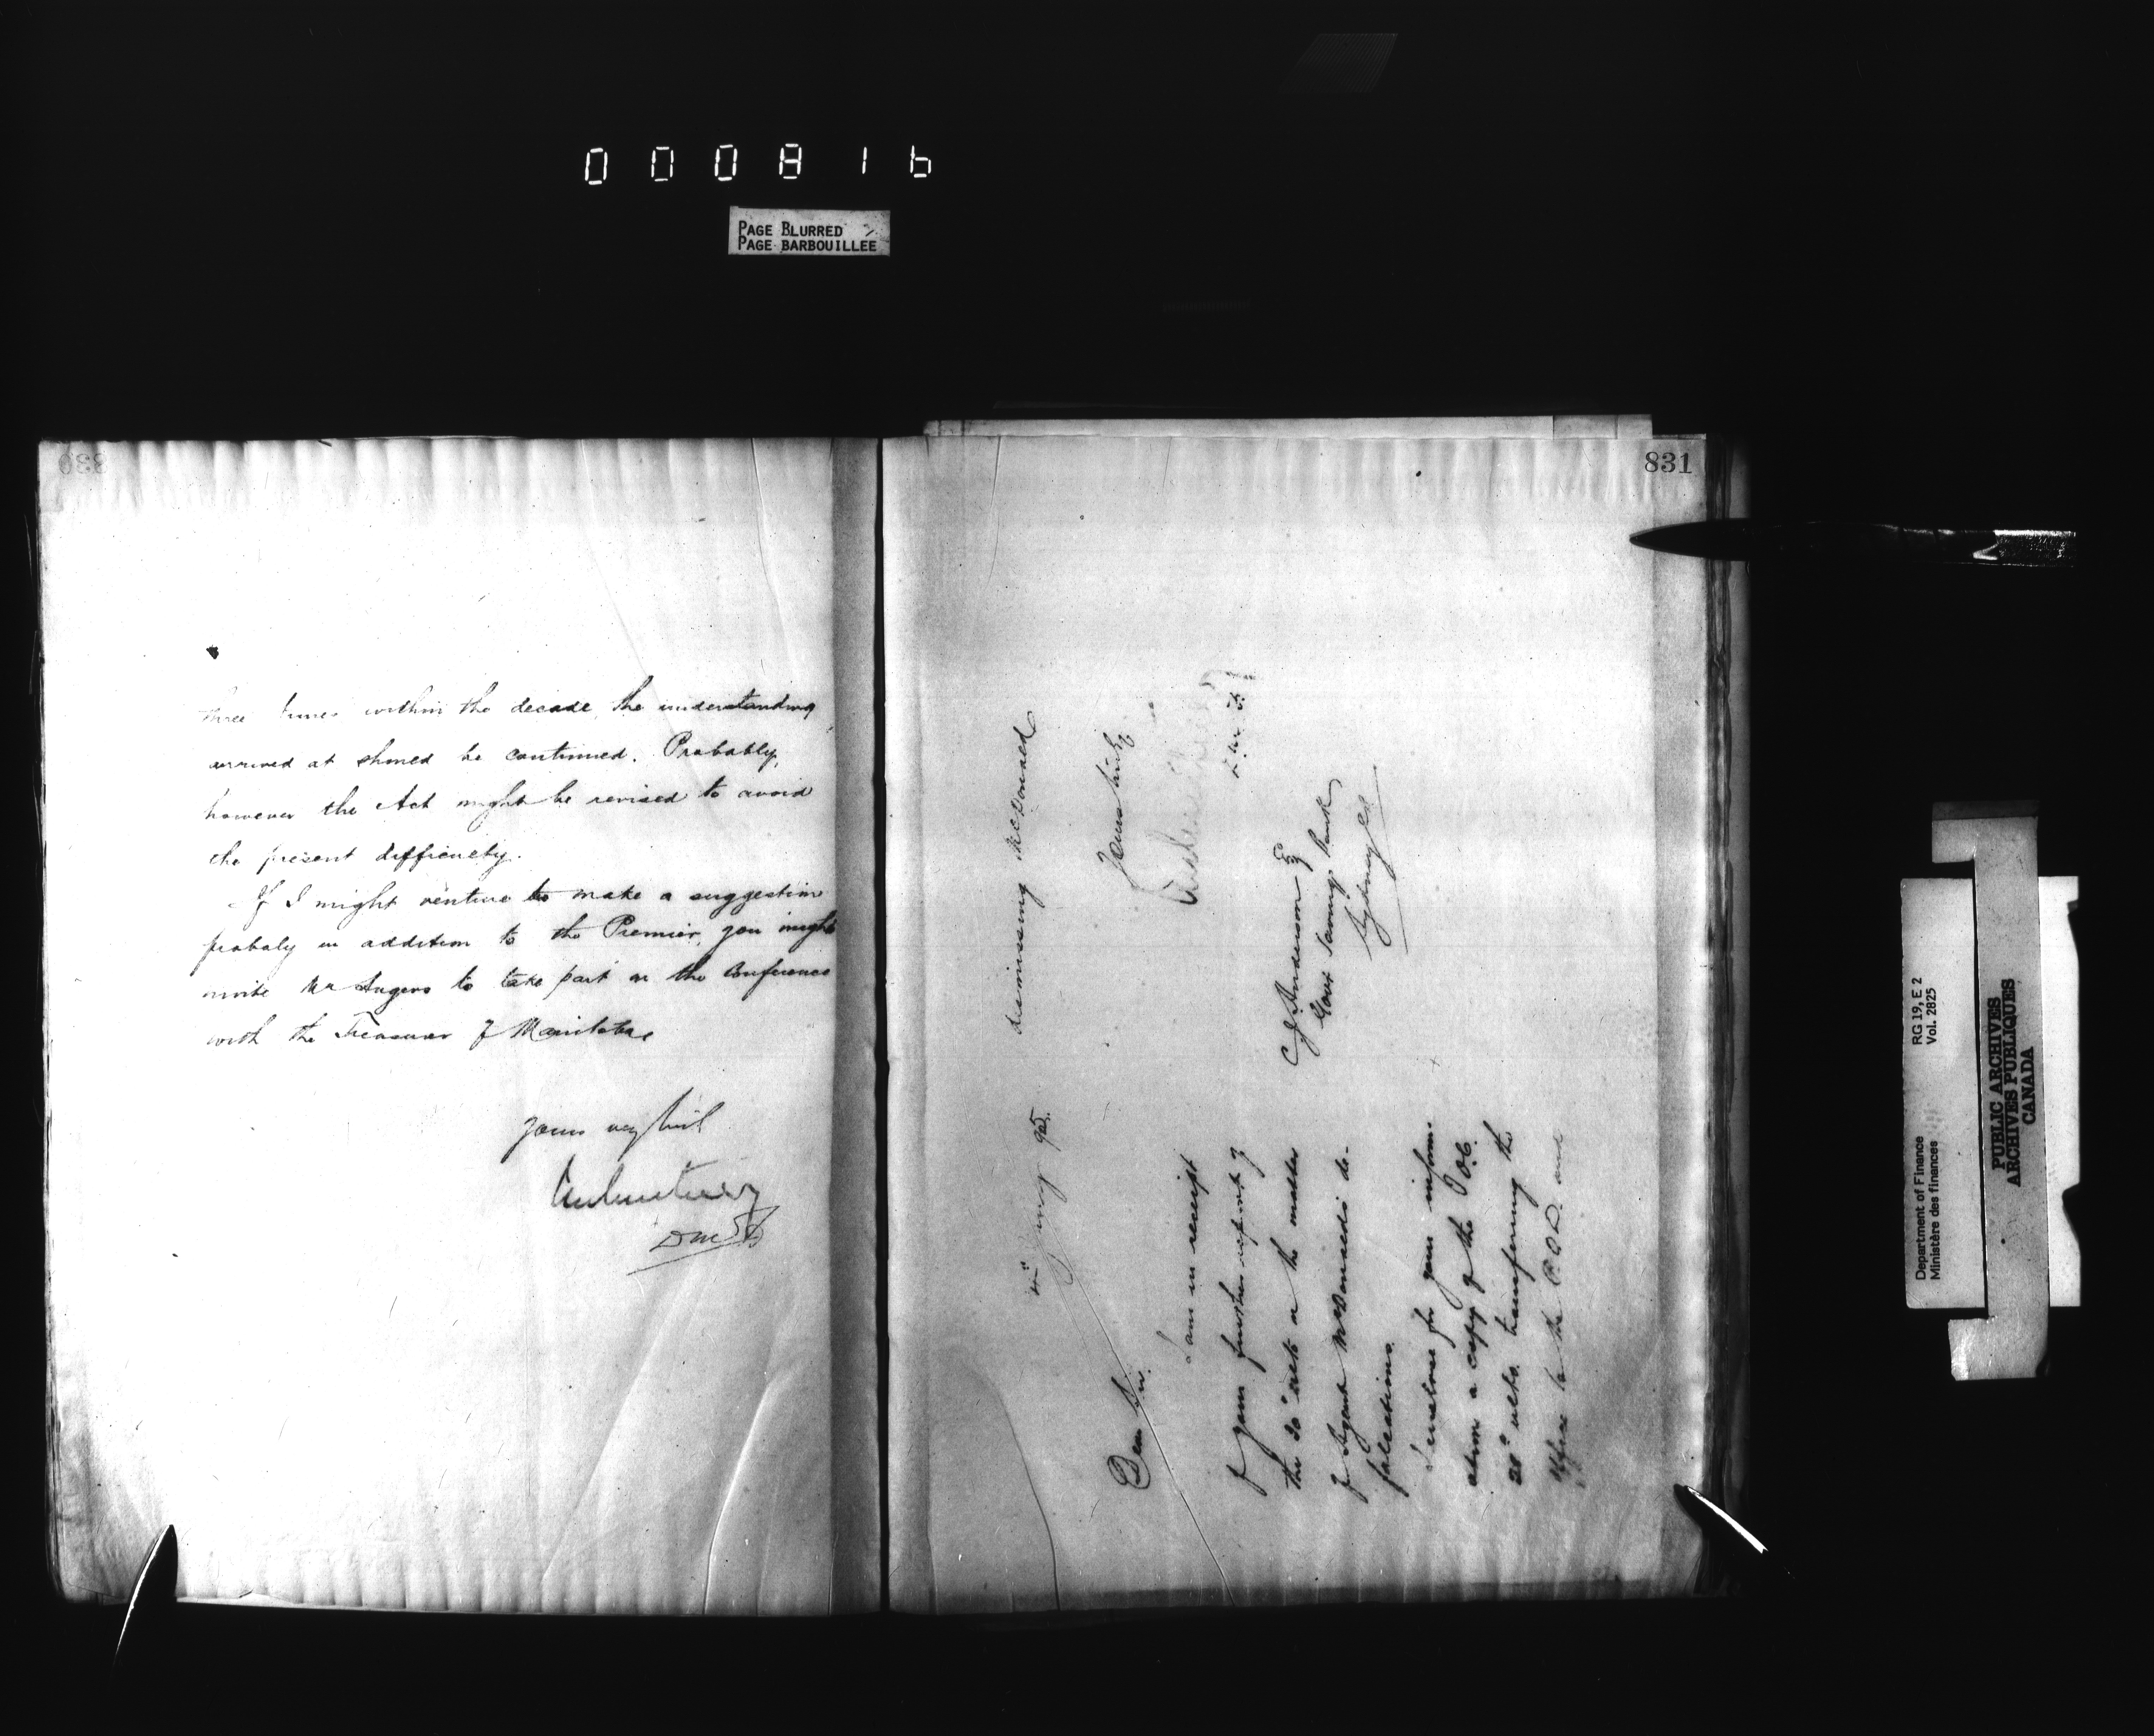 000816
PAGE BLURRED
PAGE BARBOUILLEE
830
three times within the decade, the understanding
arrived at should be continued. Probably,
however the Act might be revised to avoid
the present difficulty.
If I might venture to make a suggestion
probaly in addition to the Premier, you might
invite Mr Angers to take part in the Conference
with the Treasurer of Manitoba
Yours very truly
DMF
831
4th Jany 95.
Dear Sir.
I am in receipt
of your further report of
the 30th ulto in the matter
of Agent McDonald's de-
falcations.
I enclose for your inform-
ation a copy of the O.C.
28th ulto. transferring the
Office to the P.O.D. and
dismissing McDonald
Yours truly
D.M.F.
C J Anderson Esq
Govt Savings Bank
Sydney CB
Department of Finance
Ministère des finances
RG 19, E 2
Vol. 2825
PUBLIC ARCHIVES
ARCHIVES PUBLIQUES
CANADA